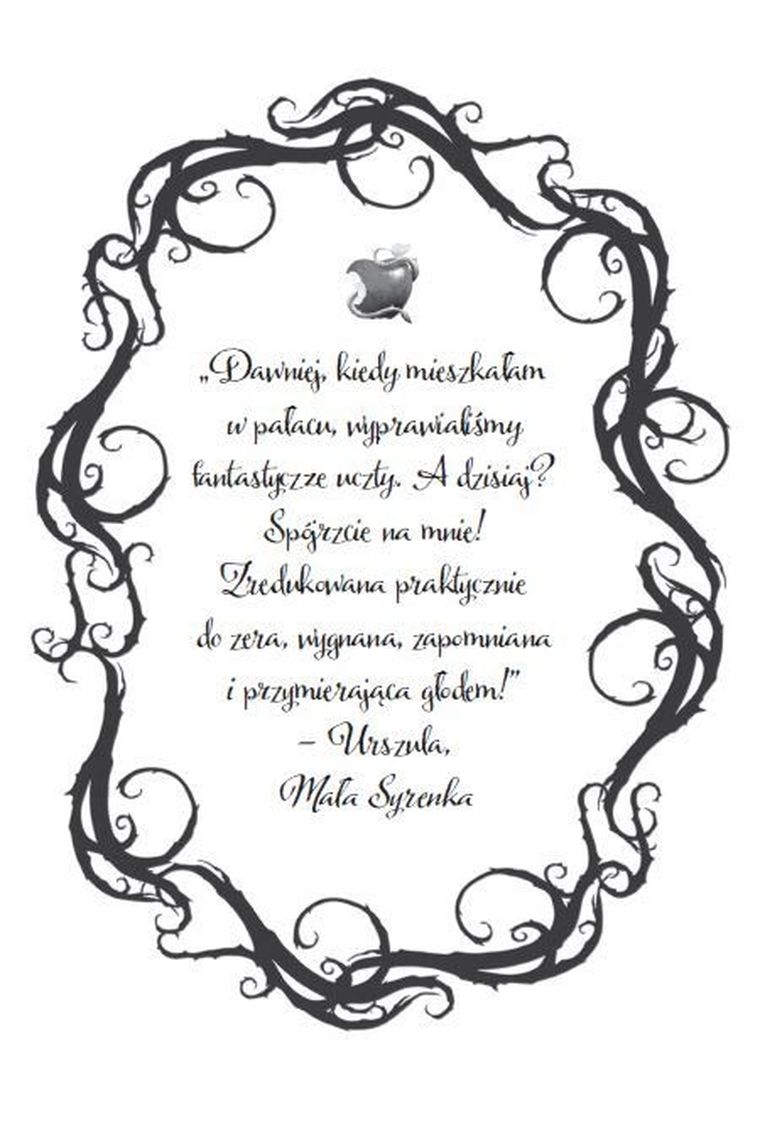 „Dawniej, kiedy mieszkałam
w pałacu, wyprawialiśmy
fantastyczze uczty. A dzisiaj?
Spójrzcie na mnie!
Zredukowana praktycznie
do zera, wygnana, zapomniana
i przymierająca głodem!”
– Urszula,
Mała Syrenka